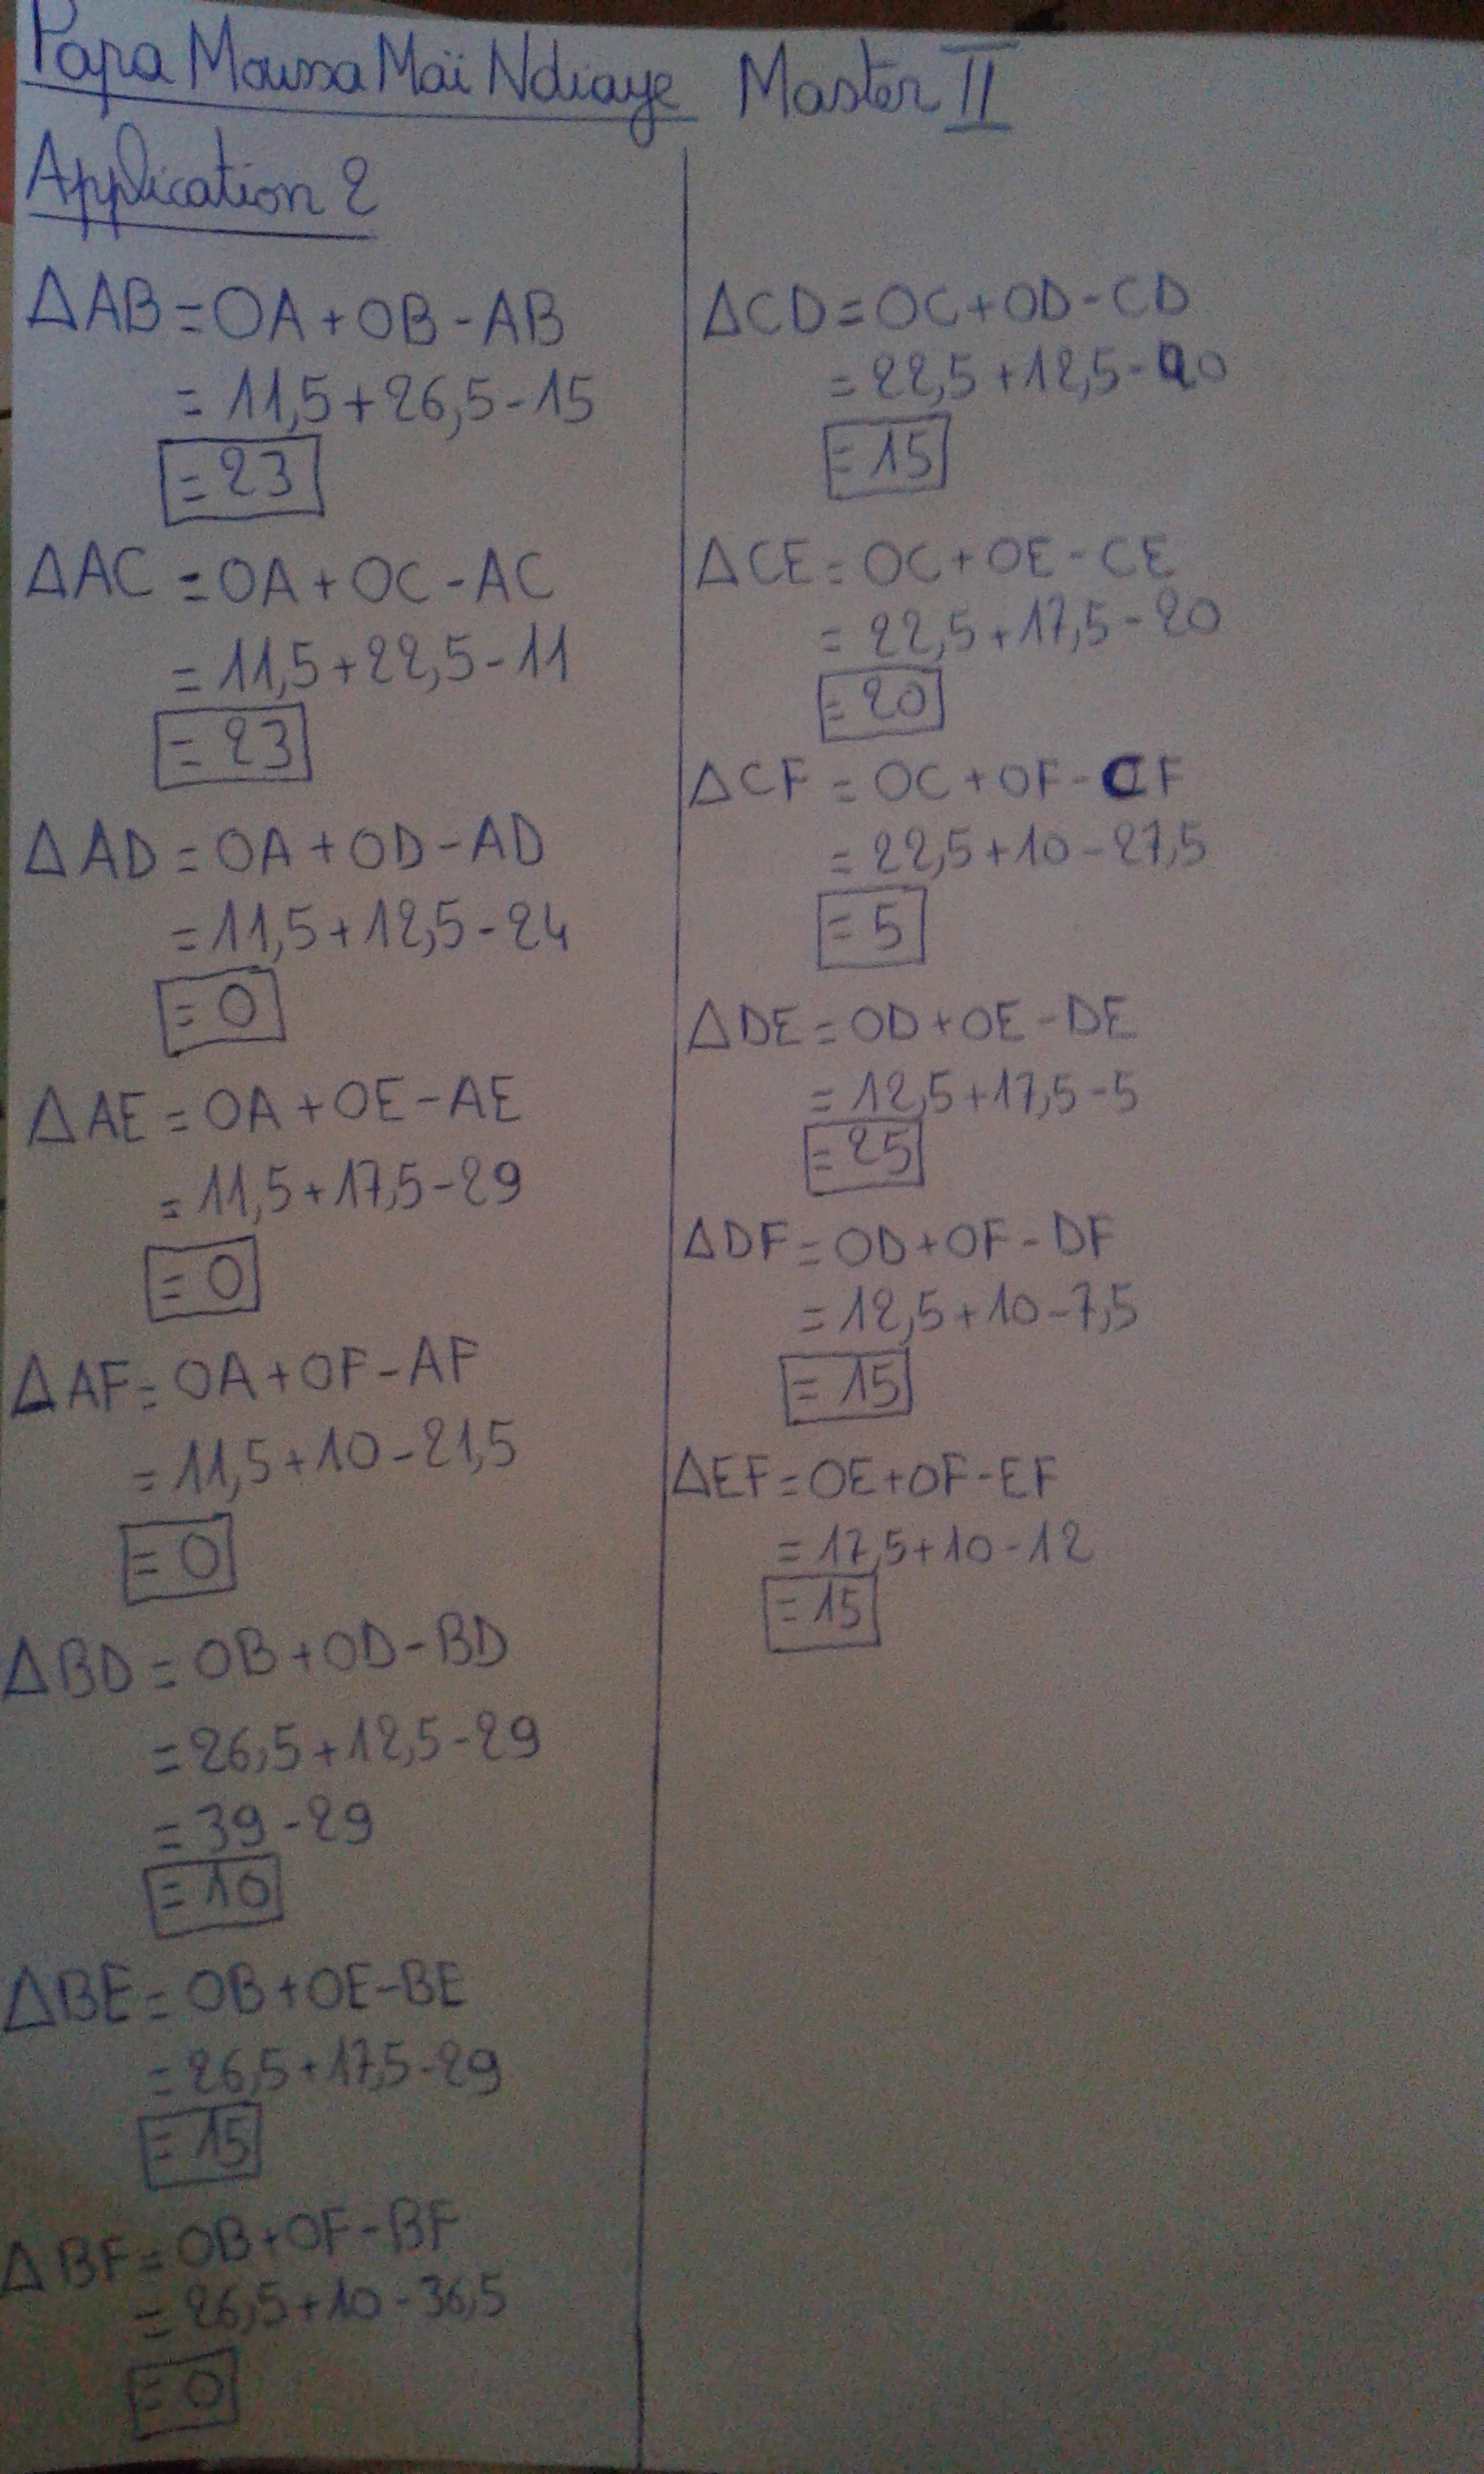 Papa Moussa Maï Ndiaye Master II
Application 2
ΔAB = OA + OB - AB
= 11,5 + 26,5 - 15
= 23
ΔAC = OA + OC - AC
= 11,5 + 22,5 - 11
= 23
ΔAD = OA + OD - AD
= 11,5 + 12,5 - 24
= 0
ΔAE = OA + OE - AE
= 11,5 + 17,5 - 29
= 0
ΔAF = OA + OF - AF
= 11,5 + 10 - 21,5
= 0
ΔBD = OB + OD - BD
= 26,5 + 12,5 - 29
= 39 - 29
= 10
ΔBE = OB + OE - BE
= 26,5 + 17,5 - 29
= 15
ΔBF = OB + OF - BF
= 26,5 + 10 - 36,5
= 0
ΔCD = OC + OD - CD
= 22,5 + 12,5 - 20
= 15
ΔCE = OC + OE - CE
= 22,5 + 17,5 - 20
= 20
ΔCF = OC + OF - CF
= 22,5 + 10 - 27,5
= 5
ΔDE = OD + OE - DE
= 12,5 + 17,5 - 5
= 25
ΔDF = OD + OF - DF
= 12,5 + 10 - 7,5
= 15
ΔEF = OE + OF - EF
= 17,5 + 10 - 12
= 15